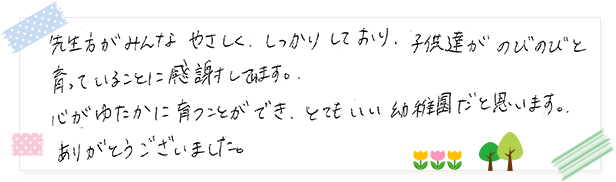 先生方がみんなやさしく、しっかりしており、子供達がのびのびと
育っていることに感謝してます。
心がゆたかに育つことができ、とてもいい幼稚園だと思います。
ありがとうございました。